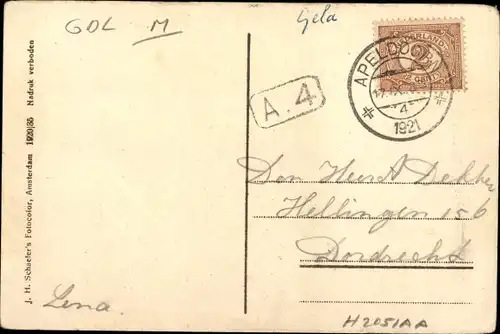 GDL M
Gela
NEDERLAND
APELDOORN
4
1921
A.4
Den Heer A Dekker
Hellingen 156
Dordrecht
Lena.
H2051AA
J. H. Schaefer's Fotocolor, Amsterdam 1920|35 Nadruk verboden